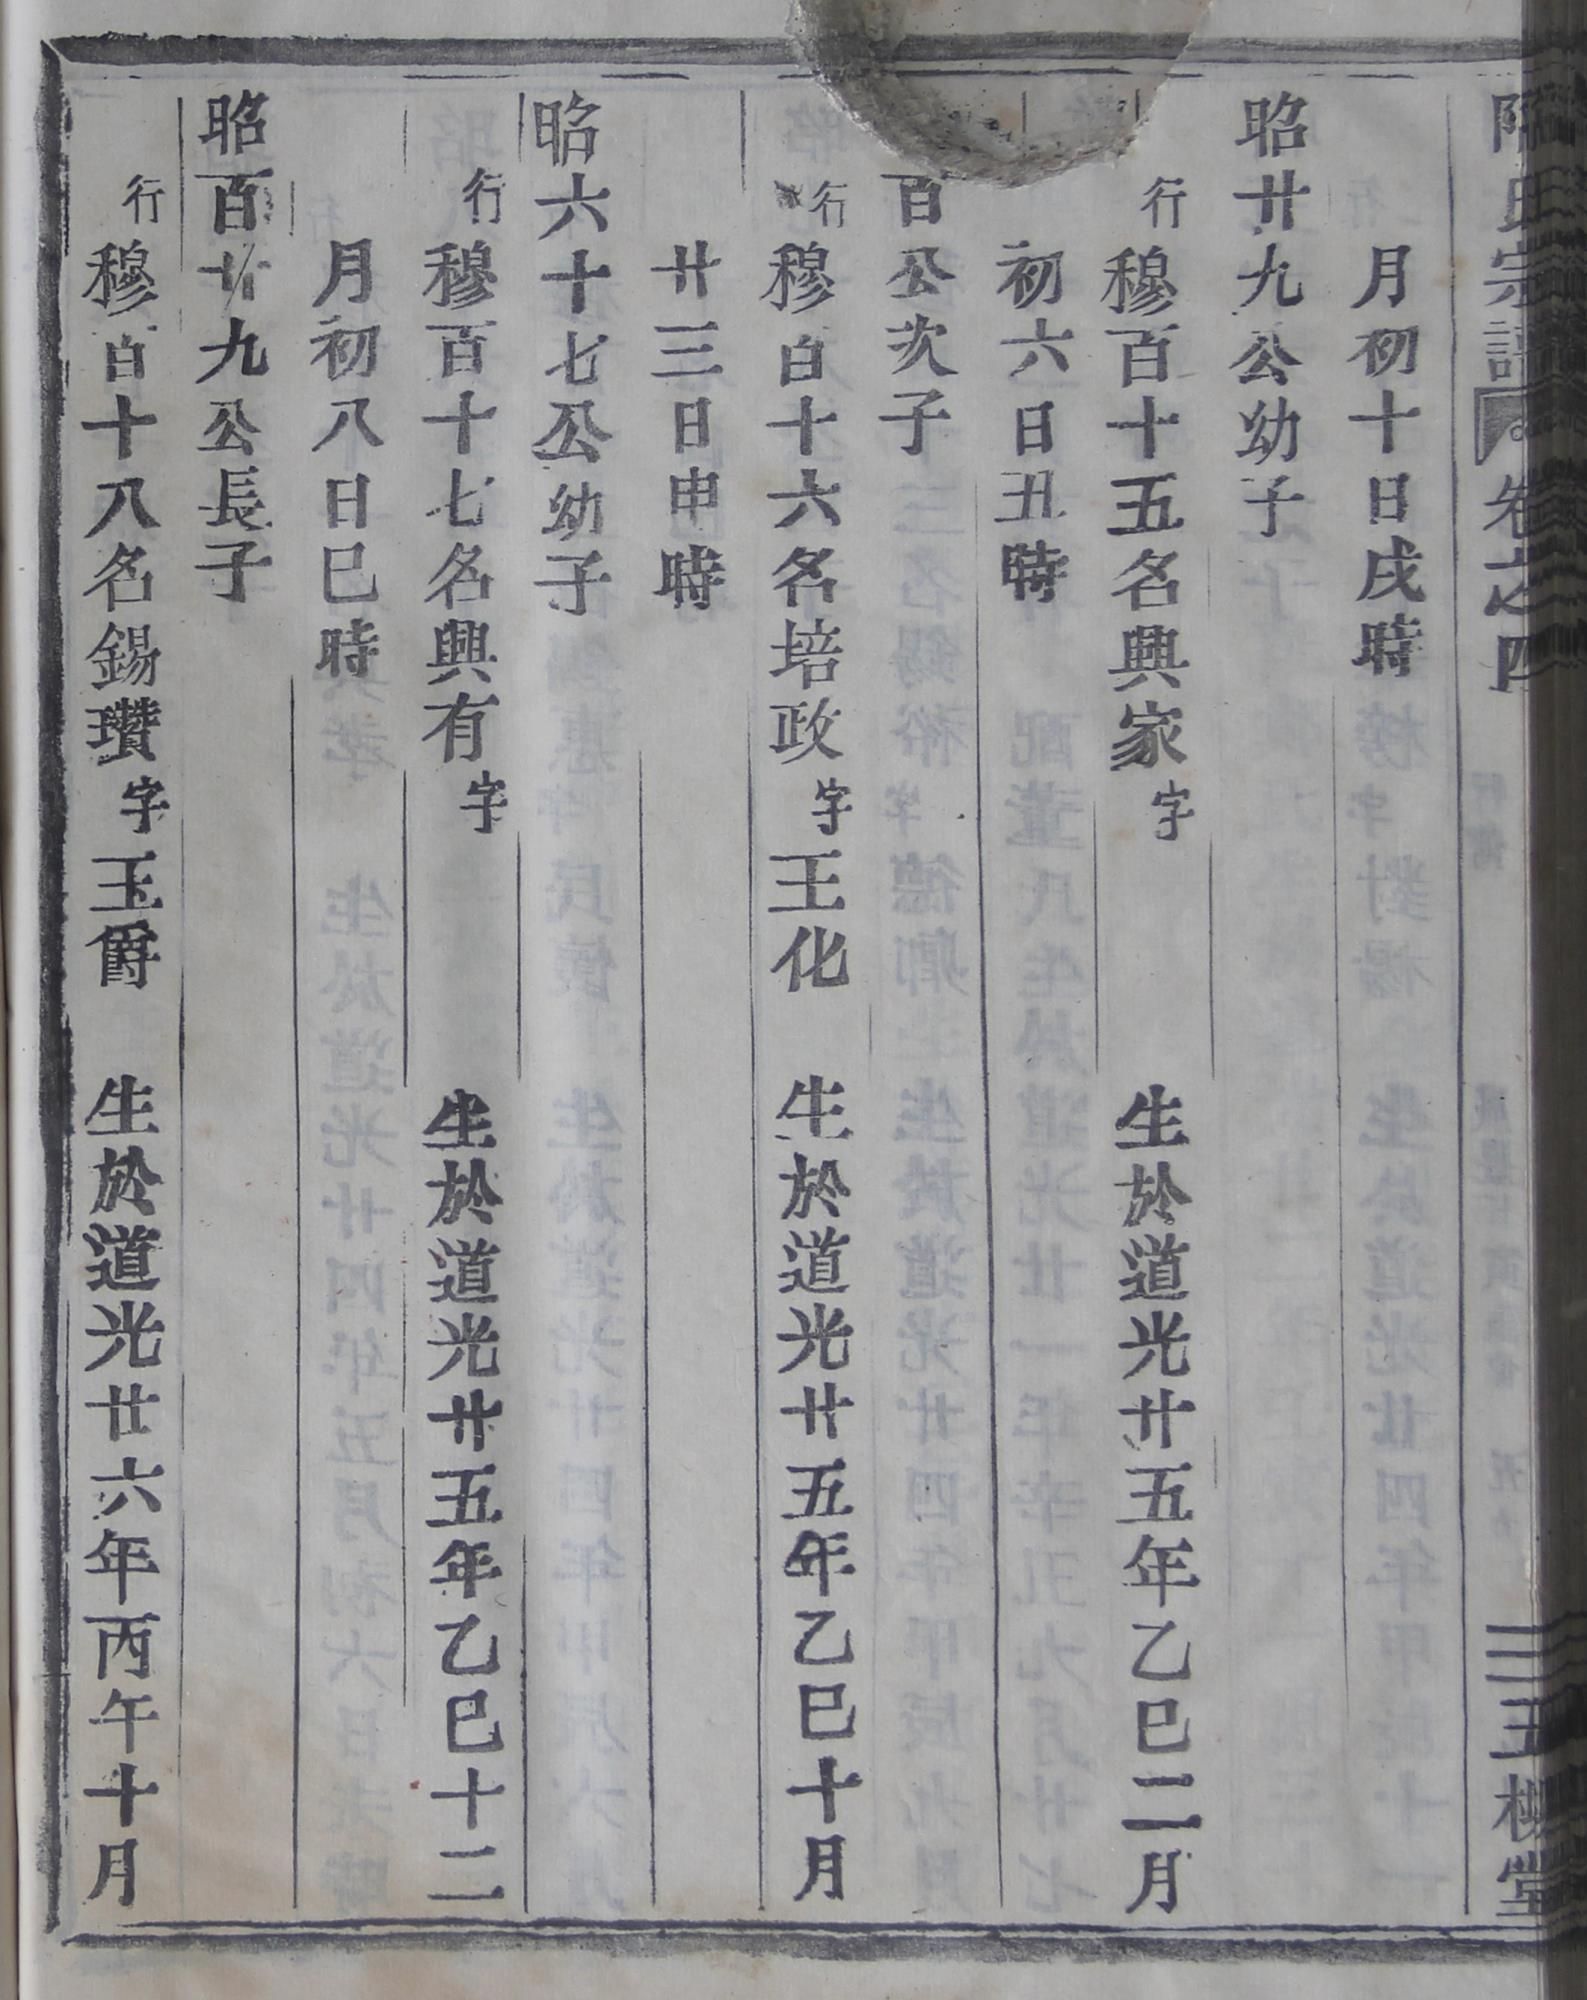 氏宗譜 卷之四 三 五桂堂
月初十日戌時
昭廿九公幼子
行穆百十五名興家字 生於道光廿五年乙巳二月
初六日丑時
百公次子
行穆百十六名培政字王化 生於道光廿五年乙巳十月
廿三日申時
昭六十七公幼子
行穆百十七名興有字 生於道光廿五年乙巳十二
月初八日巳時
昭百廿九公長子
行穆百十八名錫瓚字玉爵 生於道光廿六年丙午十月